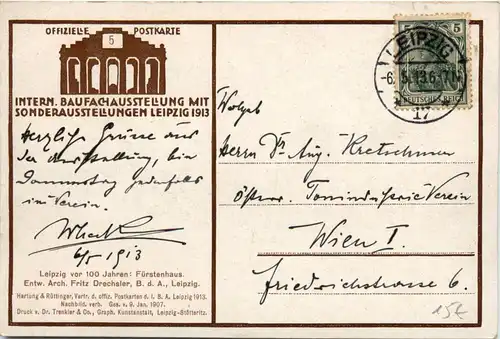 OFFIZIELLE POSTKARTE
5
INTERN. BAUFACHAUSSTELLUNG MIT
SONDERAUSSTELLUNGEN LEIPZIG 1913
Herzliche Grüsse aus
der Ausstellung, bin
Donnerstag jedenfalls
im Verein.
6/5 1913
Leipzig vor 100 Jahren: Fürstenhaus.
Entw. Arch. Fritz Drechsler, B. d. A., Leipzig.
Hartung & Rüttinger, Vertr. d. offiz. Postkarten d. I. B. A. Leipzig 1913.
Nachbild. verb. Ges. v. 9. Jan. 1907.
Druck v. Dr. Trenkler & Co., Graph. Kunstanstalt, Leipzig-Stötteritz.
5
LEIPZIG
DEUTSCHES REICH
17
Wolgeb
Herrn Dr Aug. Kretschmer
Österr. Tonindustrie Verein
Wien I.
Friedrichstrasse 6.